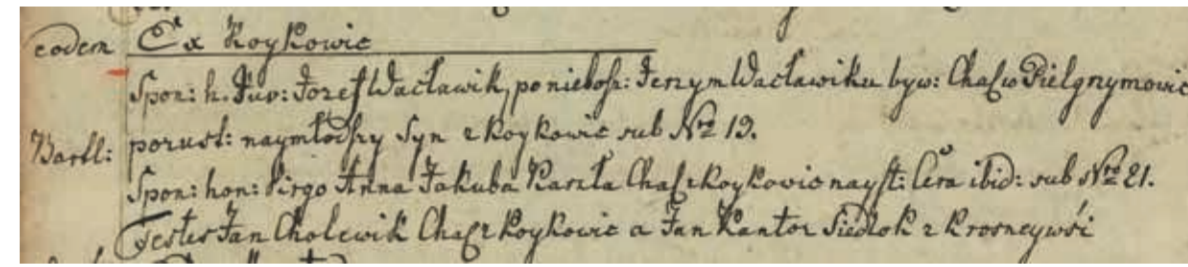 eodem Ex Koykowic
Spon: h. Juv: Jozef Wacławik, po niebosz: Jerzym Wacławiku byw: Chał: w Pielgrzymowic
Bartl: pozust: naymłodszy Syn z Koykowic sub Nro 19.
Spon: hon: Virgo Anna Jakuba Karzła Chał: z Koykowic nayst: Cera ibid: sub Nro 21.
Testes Jan Cholewik Chał: z Koykowic a Jan Kantor Siedlok z Krosneywsi